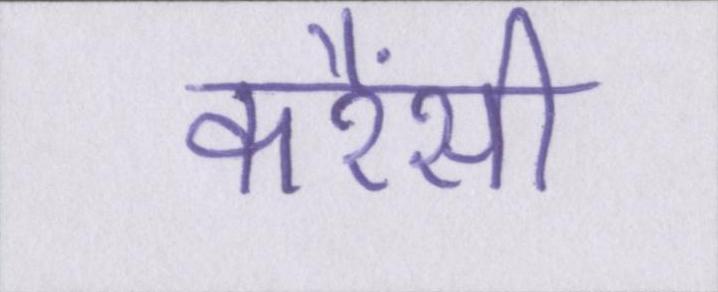 करैंसी